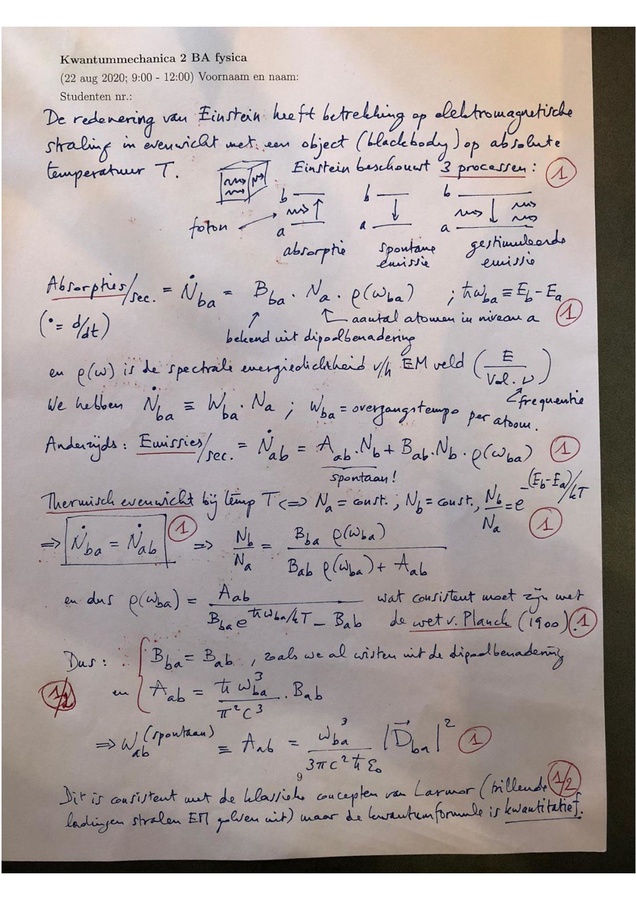 Kwantummechanica 2 BA fysica
(22 aug 2020; 9:00 - 12:00) Voornaam en naam:
Studenten nr.:
De redenering van Einstein heeft betrekking op elektromagnetische
straling in evenwicht met een object (blackbody) op absolute
temperatuur T. Einstein beschouwt 3 processen: 1
b b b
foton a a a
absorptie spontane emissie gestimuleerde emissie
Absorpties/sec. = Ṅ_ba = B_ba · N_a · ρ(ω_ba) ; ħω_ba ≡ E_b − E_a 1
(˙ = d/dt) aantal atomen in niveau a
bekend uit dipoolbenadering
en ρ(ω) is de spectrale energiedichtheid v/h EM veld (E / Vol. ν)
frequentie
We hebben Ṅ_ba ≡ W_ba · N_a ; W_ba = overgangstempo per atoom.
Anderzijds: Emissies/sec. = Ṅ_ab = A_ab · N_b + B_ab · N_b · ρ(ω_ba) 1
spontaan!
Thermisch evenwicht bij temp T <=> N_a = const., N_b = const., N_b/N_a = e^−(E_b−E_a)/kT 1
=> Ṅ_ba = Ṅ_ab 1 => N_b/N_a = B_ba ρ(ω_ba) / (B_ab ρ(ω_ba) + A_ab)
en dus ρ(ω_ba) = A_ab / (B_ba e^ħω_ba/kT − B_ab) wat consistent moet zijn met
de wet v. Planck (1900). 1
Dus: { B_ba = B_ab , zoals we al wisten uit de dipoolbenadering
1/2 en A_ab = ħω_ba³ / π²c³ · B_ab
=> W_ab^(spontaan) ≡ A_ab = ω_ba³ / 3πc²ħε₀ |D⃗_ba|² 1
9
Dit is consistent met de klassieke concepten van Larmor (trillende 1/2
ladingen stralen EM golven uit) maar de kwantumformule is kwantitatief.